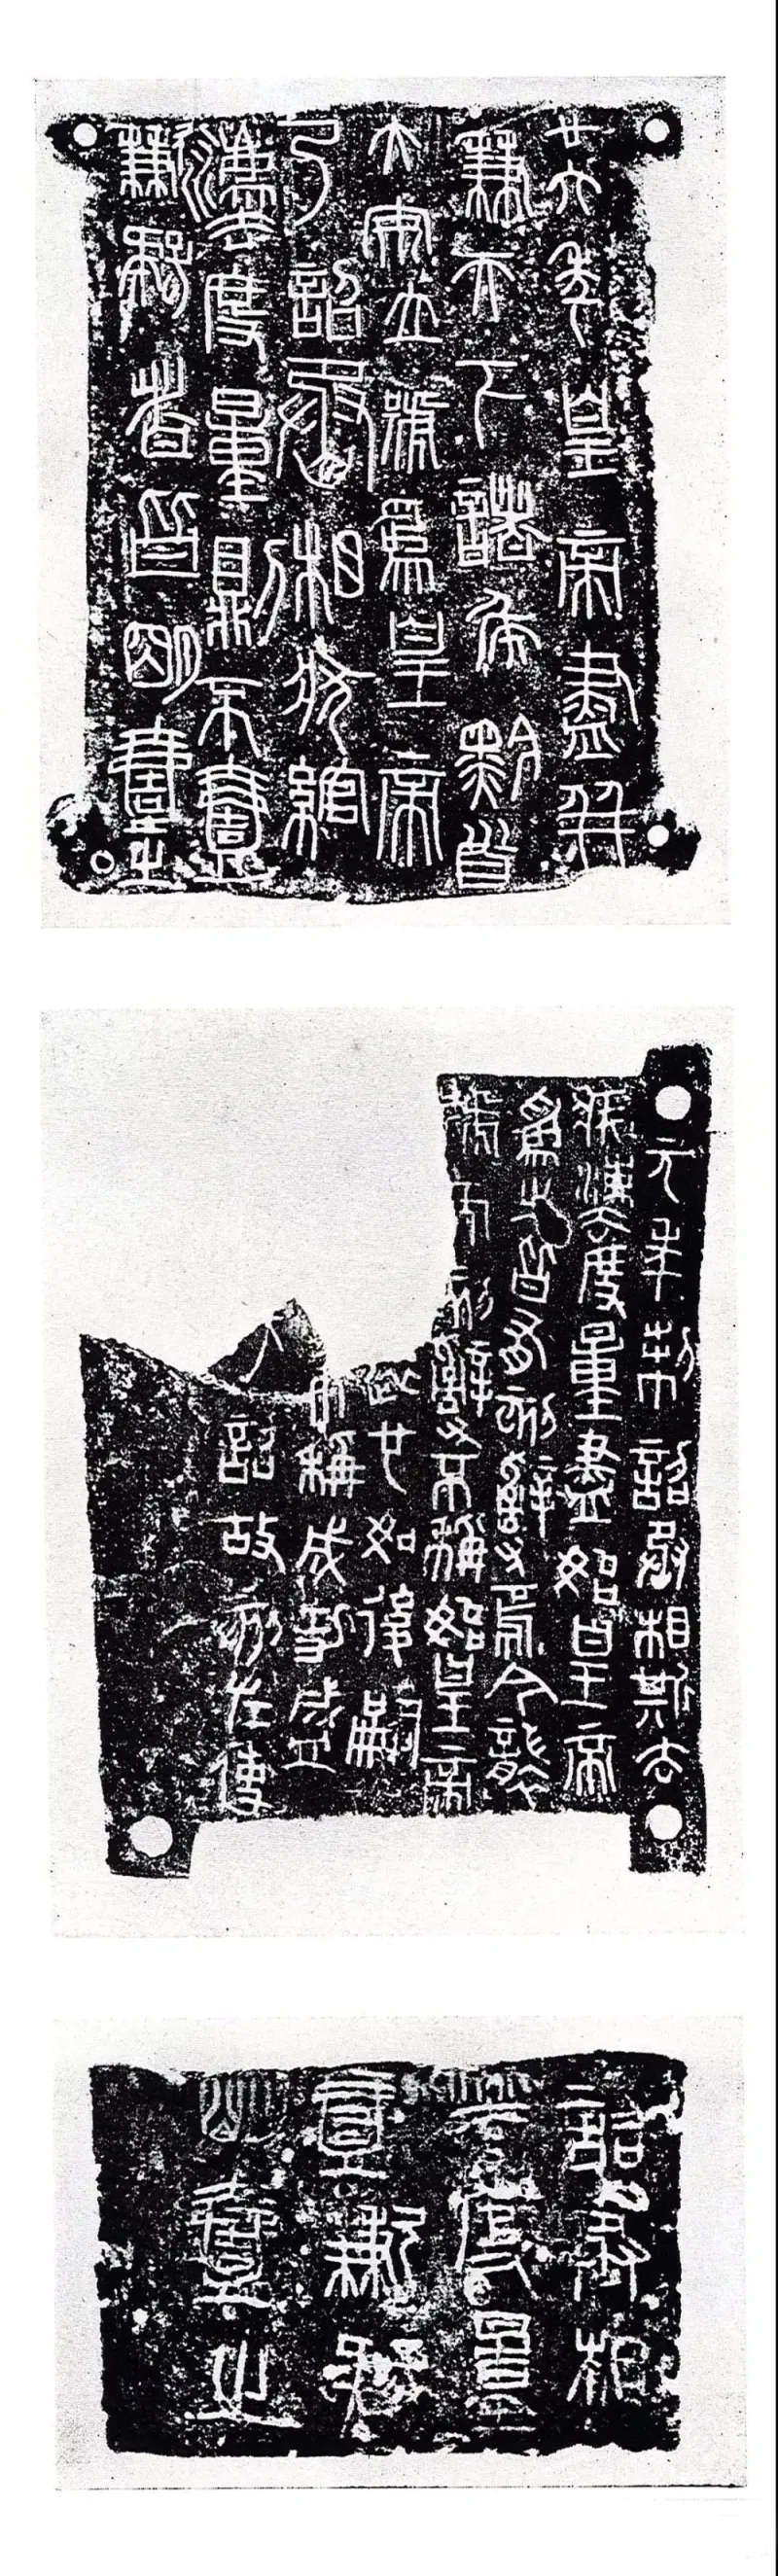 廿六年皇帝盡并
兼天下諸侯黔首
大安立號為皇帝
乃詔丞相狀綰
灋度量則不壹
歉疑者皆明壹之
元年制詔丞相斯去
疾灋度量盡始皇帝
為之皆有刻辭焉今襲
號而刻辭不稱始皇帝
遠也如後嗣
不稱成功盛
詔故刻左使
詔丞相
灋度量
壹歉疑
明壹之